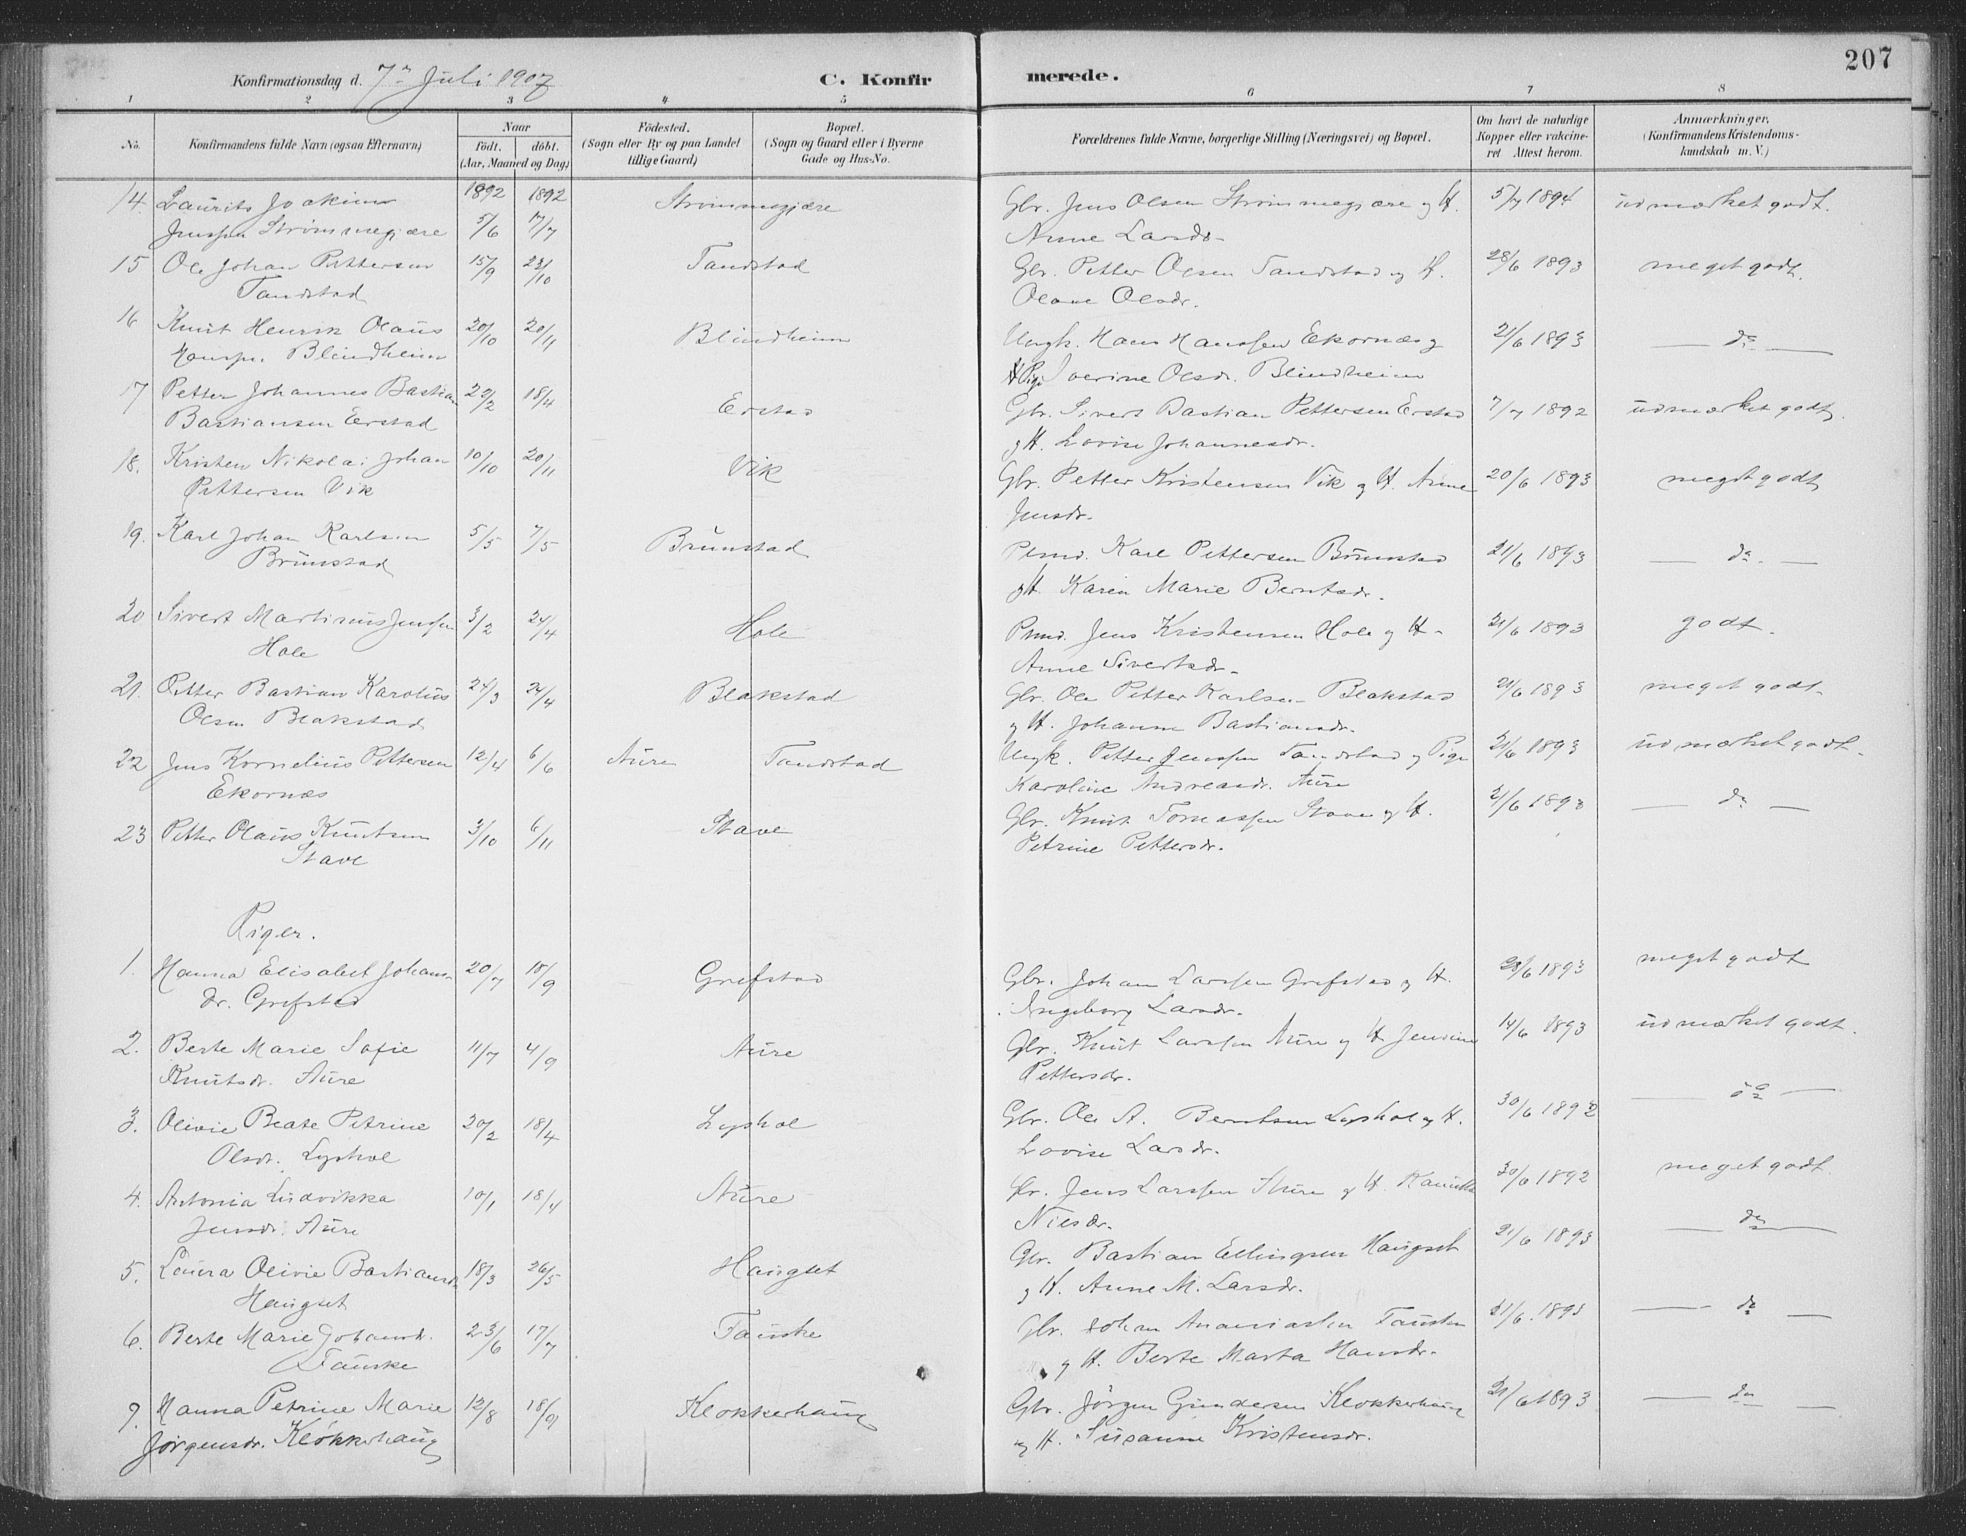 207
Konfirmationsdag d. 7de Juli 1907 C. Konfirmerede.
1 2 3 4 5 6 7 8
No. Konfirmandens fulde Navn (ogsaa Efternavn) Naar født. døbt. (Aar, Maaned og Dag) Fødested. (Sogn eller By og paa Landet tillige Gaard) Bopæl. (Sogn og Gaard eller i Byerne Gade og Hus-No. Forældrenes fulde Navne, borgerlige Stilling (Næringsvei) og Bopæl. Om havt de naturlige Kopper eller vakcineret Attest herom. Anmærkninger. (Konfirmandens Kristendomskundskab m. V.)
14. Laurits Joakim 1892 1892 Strømmegjære Gbr. Jens Olsen Strømmegjære og H. 5/7 1894 udmærket godt.
Jenssen Strømmegjære 5/6 17/7 Anne Larsdr.
15 Ole Johan Pettersen 15/9 23/10 Tandstad Gbr. Petter Olsen Tandstad og H. 28/6 1893 meget godt.
Tandstad Olave Olsdr.
16 Knut Henrik Olaus 20/10 20/11 Blindheim Ungk. Hans Hanssen Ekornæs og 21/6 1893 — do —
Hanssen Blindheim Pige Severine Olsdr. Blindheim
17 Petter Johannes Bastian 22/2 18/4 Erstad Gbr. Sivert Bastian Pettersen Erstad 7/7 1892 udmærket godt.
Bastiansen Erstad og H. Lovise Johannesdr.
18. Kristen Nikolai Johan 10/10 20/11 Vik Gbr. Petter Kristensen Vik og H. Anne 20/6 1893 meget godt
Pettersen Vik Jensdr.
19. Karl Johan Karlsen 5/5 7/5 Brunstad Plmd. Karl Pettersen Brunstad 21/6 1893 — do —
Brunstad og H. Karen Marie Berntsdr.
20 Sivert Martinus Jenssen 3/2 24/4 Hole Plmd. Jens Kristensen Hole og H. 21/6 1893 godt.
Hole Anne Sivertsdr.
21. Petter Bastian Karolus 24/3 24/4 Blakstad Gbr. Ole Petter Karlsen Blakstad 21/6 1893 meget godt.
Olsen Blakstad og H. Johanne Bastiansdr.
22 Jens Kornelius Pettersen 12/4 6/6 Aure Tandstad Ungk. Petter Jenssen Tandstad og Pige 21/6 1893 udmærket godt.
Ekornæs Karoline Andreasdr. Aure
23 Petter Olaus Knutsen 3/10 6/11 Stave Gbr. Knut Tomassen Stave og H. 21/6 1893 — do —
Stave Petrine Pettersdr.
Piger.
1. Hanna Elisabet Johans- 20/7 18/9 Grefstad Gbr. Johan Larssen Grefstad og H. 28/6 1893 meget godt
dr. Grefstad Ingeborg Larsdr.
2. Berte Marie Sofie 11/7 4/9 Aure Gbr. Knut Larssen Aure og H. Jensine 14/6 1893 udmærket godt.
Knutsdr. Aure Pettersdr.
3. Olivie Beate Petrine 20/2 18/4 Lyshol Gbr. Ole A. Berntsen Lyshol og H. 30/6 1892 do —
Olsdr. Lyshol Lovise Larsdr.
4. Antonia Ludvikka 10/1 18/4 Aure Gbr. Jens Larssen Aure og H. 30/6 1892 meget godt.
Jensdr. Aure Nilsdr.
5. Laura Olivie Bastiansdr. 18/3 26/5 Haugset Gbr. Bastian Ellingsen Haugset 21/6 1893 — do —
Haugset og H. Anne M. Larsdr.
6. Berte Marie Johansdr. 23/6 17/7 Fauske Gbr. Johan Ananiassen Fauske 21/6. 1893 — do —
Fauske og H. Berte Marta Hansdr.
7. Hanna Petrine Marie 12/8 18/9 Klokkerhaug Gbr. Jørgen Gundersen Klokkerhaug 21/6 1893 — do —
Jørgensdr. Klokkerhaug og H. Susanne Kristensdr.